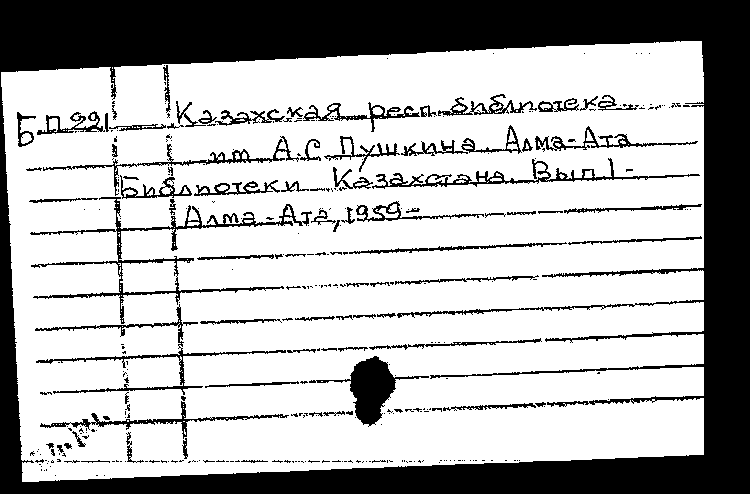 Б.П 221 Казахская респ. библиотека
им А.С Пушкина. Алма-Ата
Библиотеки Казахстана. Вып 1-
Алма-Ата, 1959-